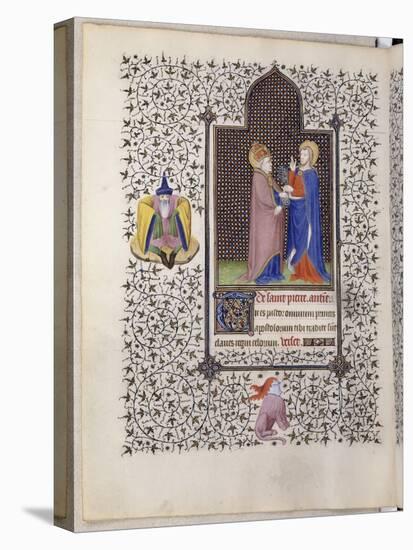 De saint pierre. antiene
Tu es pastor omnium princeps
apostolorum tibi tradite sunt
claues regni celorum. Verset.